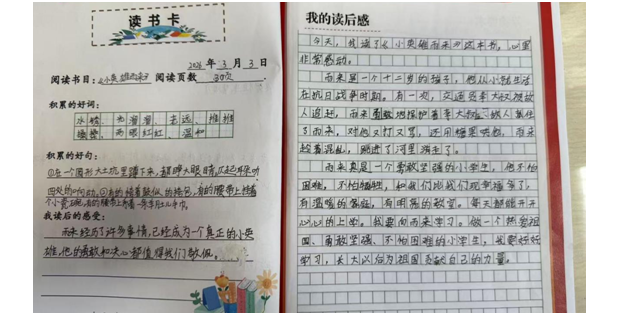 读书卡
2026年3月3日
阅读书目:《小英雄雨来》 阅读页数 30页
积累的好词:
光溜溜、
两眼红红、温和
积累的好句:
在一个圆形大土坑里蹲下来,都睁大眼睛
四处的响动。
我读后的感受:
雨来经历了许多事情,已经成为一个真正的小英
雄,他的勇敢和决心都值得我们敬佩。
我的读后感
今天,我读了《小英雄雨来》这本书,心里
非常感动。
雨来是一个十二岁的孩子,他从小就生活
在抗日战争时期。有一次,交通员李大叔被敌
人追赶,雨来勇敢地掩护着李大叔。敌人抓住
了雨来,对他又打又骂,还用糖果哄他,雨来
趁着混乱,跳进了河里逃走了。
雨来真是一个勇敢坚强的小学生,他不怕
困难,不怕牺牲,和他们比我们现幸福多了。
有温暖的家庭,有明亮的教室。每天都能开开
心心的上学。我要向雨来学习。做一个热爱祖
国、勇敢坚强、不怕困难的小学生,我要好好
学习,长大以后为祖国贡献自己的力量。